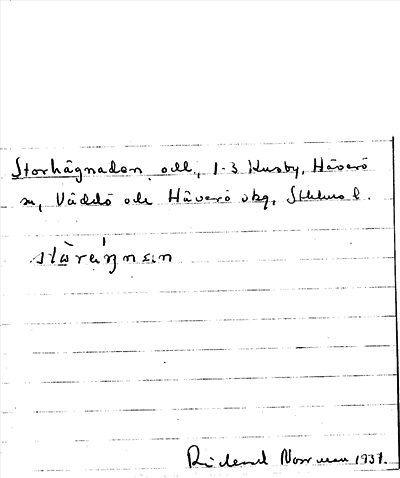 Storhägnaden, odl., 1-3 Husby, Häverö
sn, Väddö och Häverö skg, Sthlms l.
Rickard Norrman 1937.